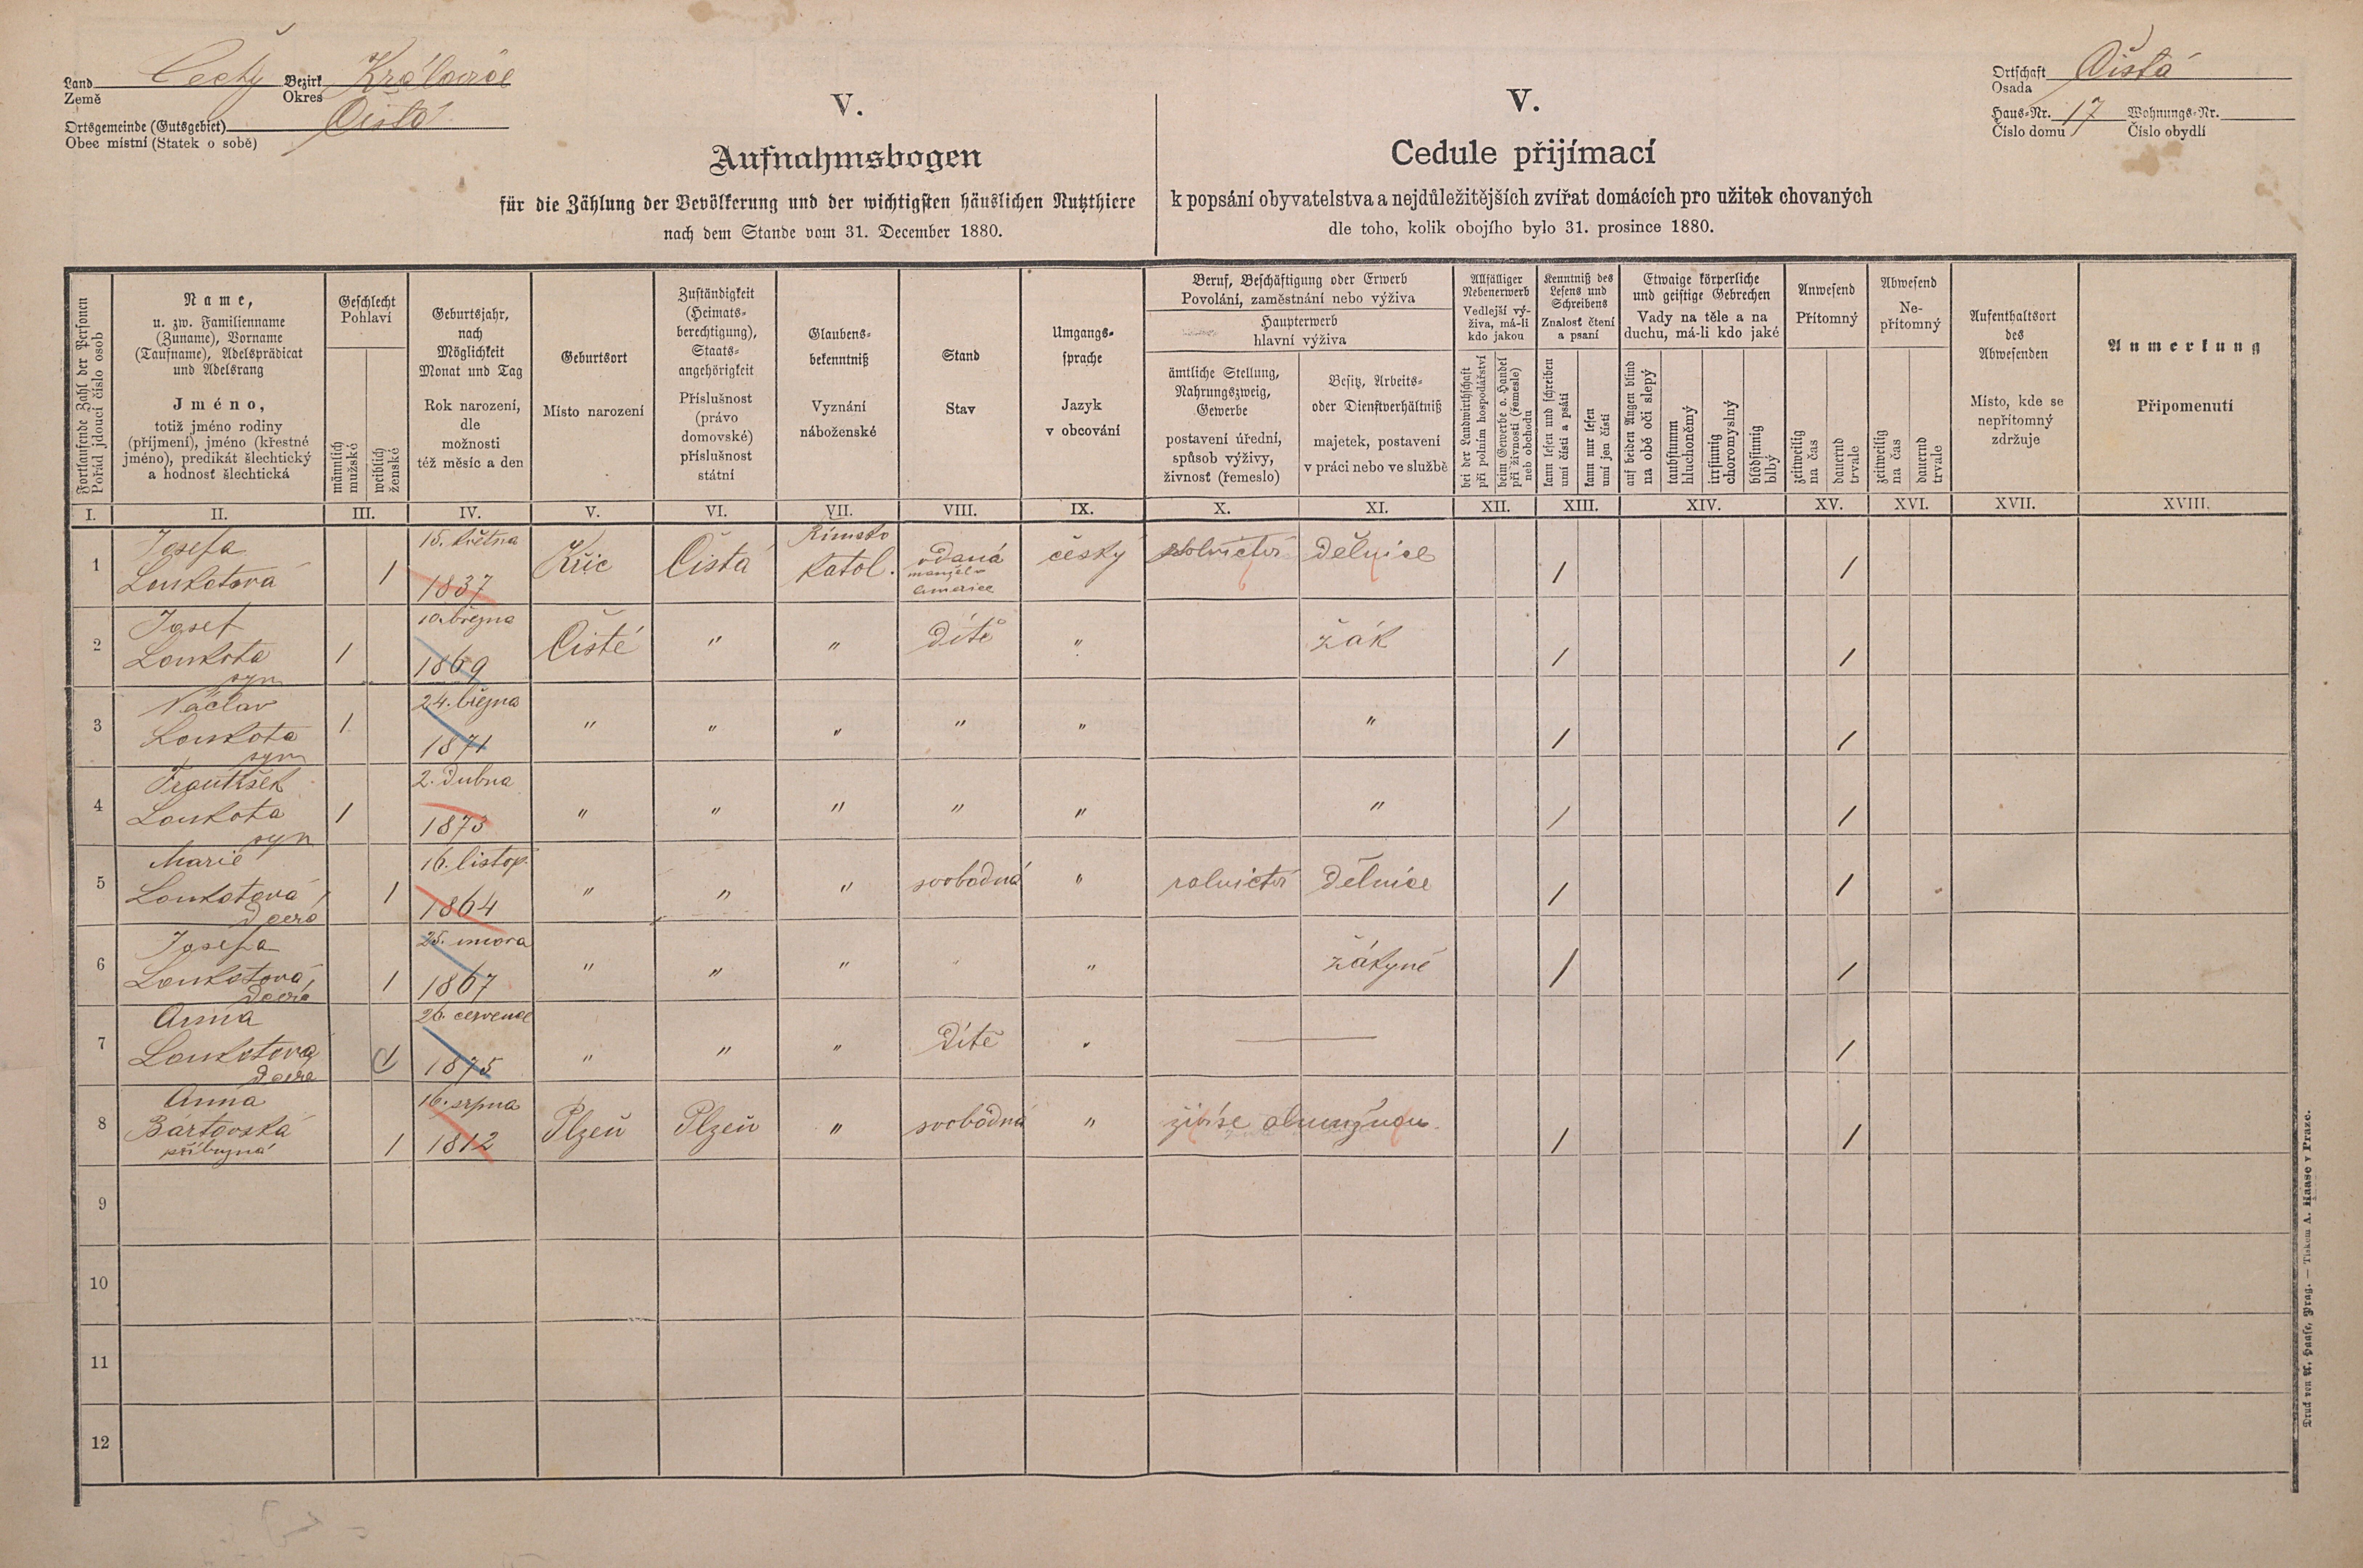 Land Čechy Bezirk Královice
Země Okres
Ortsgemeinde (Gutsgebiet) Čistá
Obec místní (Statek o sobě)
V.
Aufnahmsbogen
für die Zählung der Bevölkerung und der wichtigsten häuslichen Nutzthiere
nach dem Stande vom 31. December 1880.
V.
Cedule přijímací
k popsání obyvatelstva a nejdůležitějších zvířat domácích pro užitek chovaných
dle toho, kolik obojího bylo 31. prosince 1880.
Ortschaft Čistá
Osada
Haus-Nr. 17 Wohnungs-Nr.
Číslo domu Číslo obydlí
Fortlaufende Zahl der Personen
Pořád jdoucí číslo osob
Name,
u. zw. Familienname
(Zuname), Vorname
(Taufname), Adelsprädicat
und Adelsrang
Jméno,
totiž jméno rodiny
(příjmení), jméno (křestné
jméno), predikát šlechtický
a hodnost šlechtická
Geschlecht
Pohlaví
männlich
mužské
weiblich
ženské
Geburtsjahr,
nach
Möglichkeit
Monat und Tag
Rok narození,
dle
možnosti
též měsíc a den
Geburtsort
Místo narození
Zuständigkeit
(Heimats-
berechtigung),
Staats-
angehörigkeit
Příslušnost
(právo
domovské)
příslušnost
státní
Glaubens-
bekenntniß
Vyznání
náboženské
Stand
Stav
Umgangs-
sprache
Jazyk
v obcování
Beruf, Beschäftigung oder Erwerb
Povolání, zaměstnání nebo výživa
Haupterwerb
hlavní výživa
ämtliche Stellung,
Nahrungszweig,
Gewerbe
postavení úřední,
spůsob výživy,
živnost (řemeslo)
Besitz, Arbeits-
oder Dienstverhältniß
majetek, postavení
v práci nebo ve službě
Allfälliger
Nebenerwerb
Vedlejší vý-
živa, má-li
kdo jakou
bei der Landwirthschaft
při polním hospodářství
beim Gewerbe o. Handel
při živnosti (řemesle)
neb obchodu
Kenntniß des
Lesens und
Schreibens
Znalost čtení
a psaní
kann lesen und schreiben
umí čísti a psáti
kann nur lesen
umí jen čísti
Etwaige körperliche
und geistige Gebrechen
Vady na těle a na
duchu, má-li kdo jaké
auf beiden Augen blind
na obě oči slepý
taubstumm
hluchoněmý
irrsinnig
choromyslný
blödsinnig
blbý
Anwesend
Přítomný
zeitweilig
na čas
dauernd
trvale
Abwesend
Ne-
přítomný
zeitweilig
na čas
dauernd
trvale
Aufenthaltsort
des
Abwesenden
Místo, kde se
nepřítomný
zdržuje
Anmerkung
Připomenutí
I. II. III. IV. V. VI. VII. VIII. IX. X. XI. XII. XIII. XIV. XV. XVI. XVII. XVIII.
1 Josefa Loukotová 1 15. května 1837 Kříc Čistá Římsko katol. vdaná manžel v Americe český rolnictví dělnice / /
2 Josef Loukota syn 1 10. března 1869 Čisté " " dítě " žák / /
3 Václav Loukota syn 1 24. března 1871 " " " " " " / /
4 František Loukota syn 1 2. dubna 1873 " " " " " " / /
5 Marie Loukotová, dcera 1 16. listop. 1864 " " " svobodná " rolnictví dělnice / /
6 Josefa Loukotová, dcera 1 25. února 1867 " " " " " žákyně / /
7 Anna Loukotová dcera 1 26. července 1875 " " " dítě " — /
8 Anna Bártovská příbuzná 1 16. srpna 1812 Plzeň Plzeň " svobodná " živí se almužnou. / /
9
10
11
12
Druck von A. Haase, Prag. — Tiskem A. Haase v Praze.